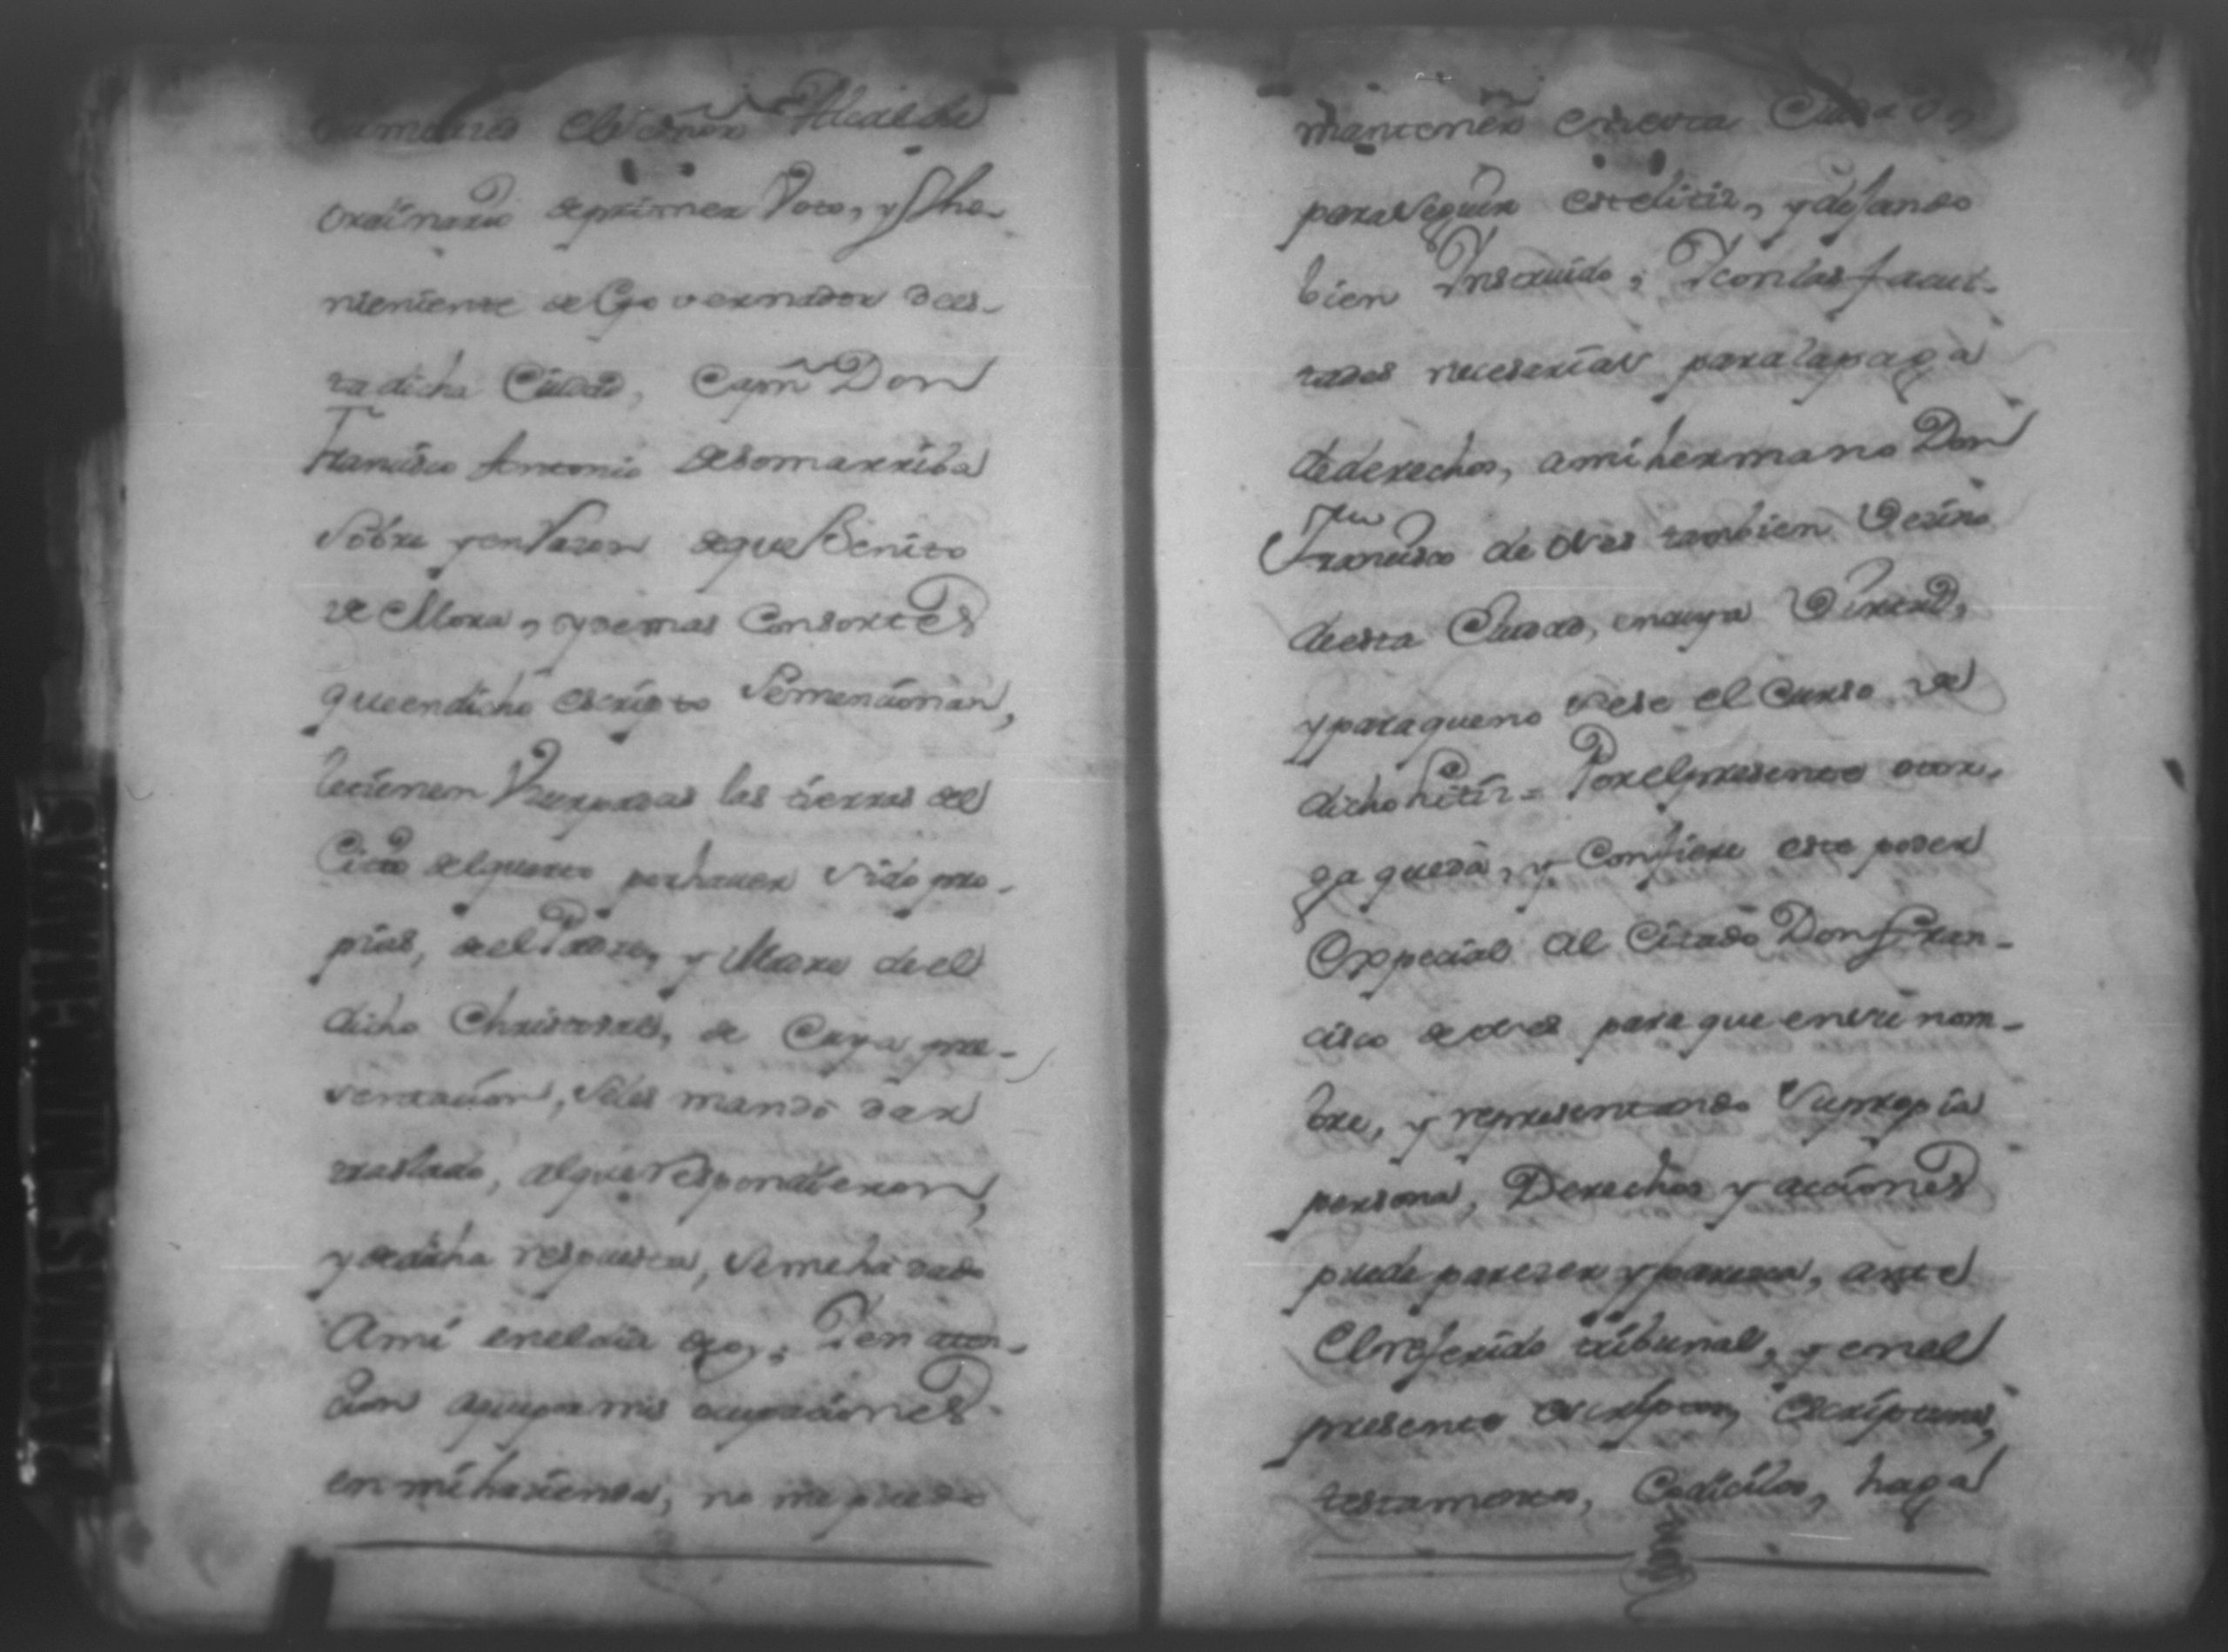 el señor Alcalde
ordinario de primer Voto, y The-
nieniente de Governador dees-
ta dicha Ciudad, Capn Don
Francisco Antonio de somarriba
sobre y en razon de que Benito
de Mora, y demas Consortes
que en dicho escripto se mencionan,
le tienen Vsurpadas las tierras del
Citio del por haver sido pro-
pias, de el Padre, y Madre de el
dicho Christoval, de Cuya pre-
sentacion, se les mandó dar
traslado, al que respondieron,
y de dicha respuesta, se me ha dado
Ami en el dia oy; Y en aten-
cion aque por mis ocupaciones
en mi hazienda, no me puedo
mantener en esta Ciudad,
para seguir este litis, y dejando
bien Instruido; Y con las facul-
tades necesarias para la paga
de derechos, a mi hermano Don
Francisco de tambien Vezino
de esta Ciudad, en cuya Virtud,
y para que no sese el Curso de
dicho Litis = Por el presente otor,
ga que dá, y Confiere este poder
Expecial al Citado Don Fran-
cisco de para que en su nom-
bre, y representando su propia
persona, Derechos y acciones
puede parezer y paresca, ante
El referido tribunal, y en el
presente escriptos, escripturas,
testamentos, Codicilos, haga
PAGINAS MUTILADAS